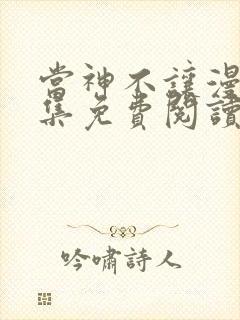 當神不讓漫
集免費閱讀
吟嘯詩人